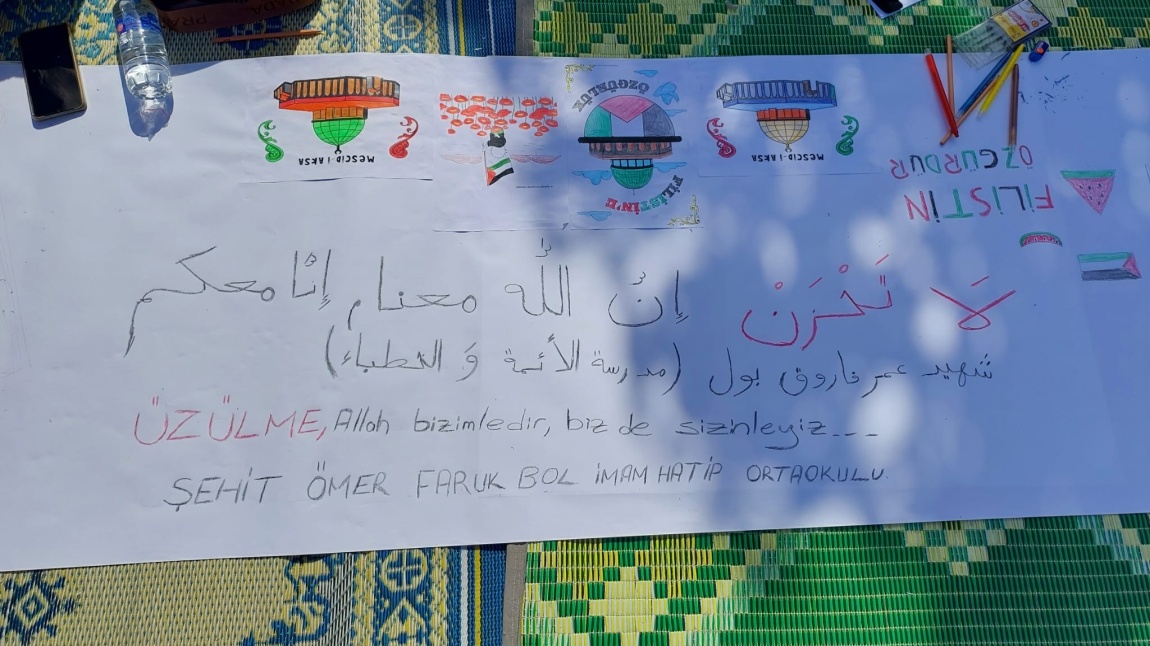 MESCİD-İ AKSA
ÖZGÜRLÜK
FİLİSTİN'E
MESCİD-İ AKSA
FİLİSTİN
ÖZGÜRDÜR
لَا تَحْزَنْ إِنَّ اللّٰه معنا، إِنَّا معكم
شهيد عمر فاروق بول (مدرسة الأئمة وَ الخطباء)
ÜZÜLME, Allah bizimledir, biz de sizinleyiz...
ŞEHİT ÖMER FARUK BOL İMAM HATİP ORTAOKULU